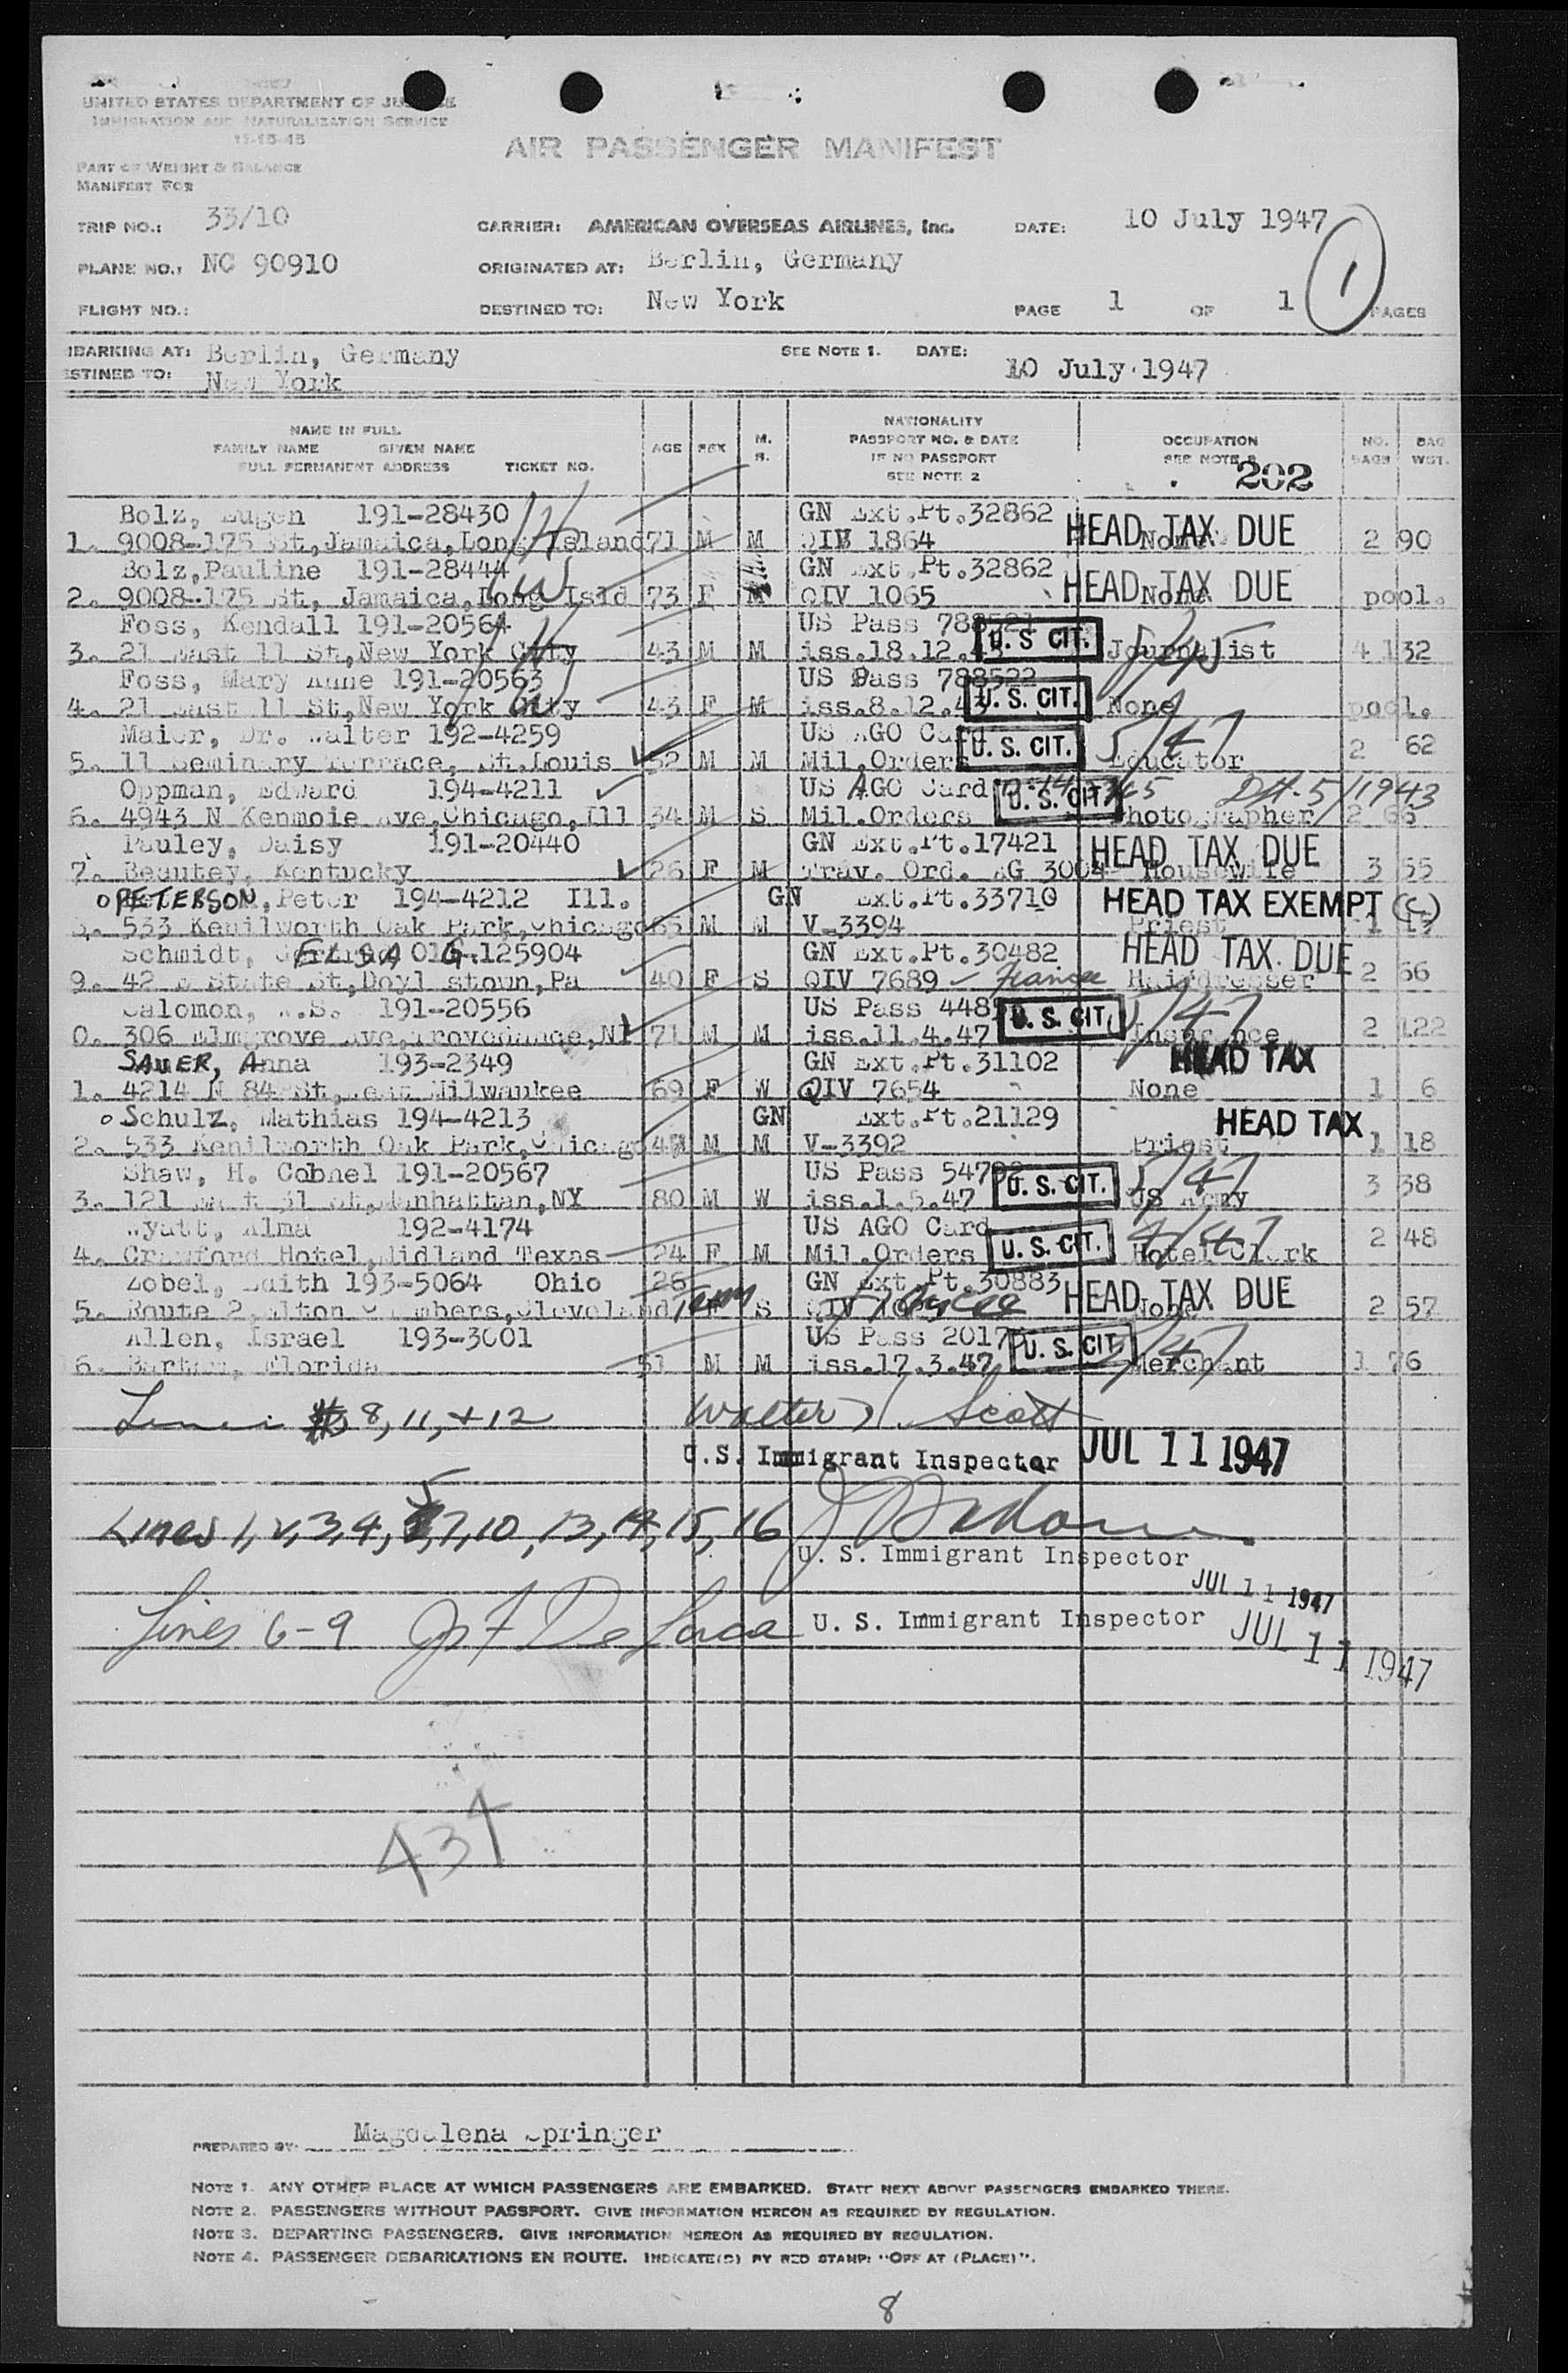 UNITED STATES DEPARTMENT OF JUSTICE
IMMIGRATION AND NATURALIZATION SERVICE
11-15-45
AIR PASSENGER MANIFEST
PART OF WEIGHT & BALANCE
MANIFEST FOR
TRIP NO.: 33/10 CARRIER: AMERICAN OVERSEAS AIRLINES, Inc. DATE: 10 July 1947
PLANE NO.: NC 90910 ORIGINATED AT: Berlin, Germany 1
FLIGHT NO.: DESTINED TO: New York PAGE 1 OF 1 PAGES
MBARKING AT: Berlin, Germany SEE NOTE 1. DATE: 10 July 1947
ESTINED TO: New York
NAME IN FULL AGE SEX M. S. NATIONALITY OCCUPATION NO. BAG
FAMILY NAME GIVEN NAME PASSPORT NO. & DATE SEE NOTE BAGS WGT.
FULL PERMANENT ADDRESS TICKET NO. IF NO PASSPORT
SEE NOTE 2 202
Bolz, Eugen 191-28430 GN Ext.Pt.32862 HEAD TAX DUE
1. 9008-175 St,Jamaica,Long Island 71 M M QIV 1864 None 2 90
Bolz,Pauline 191-28444 GN Ext.Pt.32862 HEAD TAX DUE
2. 9008-175 St, Jamaica,Long Isld 73 F M QIV 1065 None pool.
Foss, Kendall 191-20564 US Pass 788521 U. S. CIT.
3. 21 East 11 St,New York City 43 M M iss.18.12. Journalist 4 132
Foss, Mary Anne 191-20563 US Pass 788522 U. S. CIT.
4. 21 East 11 St,New York City 43 F M iss.8.12. None pool.
Maier, Dr. Walter 192-4259 US AGO Card U. S. CIT. 5/47
5. 11 Seminary Terrace, St.Louis 52 M M Mil.Orders Educator 2 62
Oppman, Edward 194-4211 US AGO Card U. S. CIT.
6. 4943 N Kenmoie Ave,Chicago,Ill 34 M S Mil.Orders Photographer 2 66
Pauley, Daisy 191-20440 GN Ext.Pt.17421 HEAD TAX DUE
7. Beautey, Kentucky 26 F M Trav. Ord. AG 3004 Housewife 3 55
PETERSON, Peter 194-4212 Ill. GN Ext.Pt.33710 HEAD TAX EXEMPT (C)
533 Kenilworth Oak Park,Chicago 65 M M V-3394 Priest 1
Schmidt, ELSA G. 125904 GN Ext.Pt.30482 HEAD TAX DUE
9. 42 E State St,Doylstown,Pa 40 F S QIV 7689 Hairdresser 2 66
Salomon, 191-20556 US Pass U. S. CIT. 5/47
0. 306 Elmgrove Ave,Provedence, 71 M M iss.11.4.47 Insurance 2 122
SAUER, Anna 193-2349 GN Ext.Pt.31102 HEAD TAX
1. 4214 N 84 St,West Milwaukee 69 F W QIV 7654 None 1 6
Schulz, Mathias 194-4213 GN Ext.Pt.21129 HEAD TAX
2. 533 Kenilworth Oak Park,Chicago M M V-3392 Priest 1 18
Shaw, H. Cobnel 191-20567 US Pass U. S. CIT. 5/47
3. 121 31 St,Manhattan,NY 80 M W iss.1.5.47 US Army 3 38
Wyatt, Alma 192-4174 US AGO Card U. S. CIT. 4/47
4. Crawford Hotel,Midland Texas 24 F M Mil.Orders Hotel Clerk 2 48
Zobel, Edith 193-5064 Ohio 26 GN Ext.Pt.30883 HEAD TAX DUE
5. Route 2, Cleveland S None 2 57
Allen, Israel 193-3001 US Pass U. S. CIT.
16. Florida 51 M M iss.17.3.47 Merchant 1 76
8, 11, + 12 Walter Scott
U.S. Immigrant Inspector JUL 11 1947
Lines 1, 2, 3, 4, 5, 7, 10, 13, 14, 15, 16
U. S. Immigrant Inspector
JUL 11 1947
Lines 6-9 De Luca U. S. Immigrant Inspector JUL 11 1947
434
PREPARED BY: Magdalena Springer
NOTE 1. ANY OTHER PLACE AT WHICH PASSENGERS ARE EMBARKED. STATE NEXT ABOVE PASSENGERS EMBARKED THERE.
NOTE 2. PASSENGERS WITHOUT PASSPORT. GIVE INFORMATION HEREON AS REQUIRED BY REGULATION.
NOTE 3. DEPARTING PASSENGERS. GIVE INFORMATION HEREON AS REQUIRED BY REGULATION.
NOTE 4. PASSENGER DEBARKATIONS EN ROUTE. INDICATE(D) BY RED STAMP: "OFF AT (PLACE)".
8